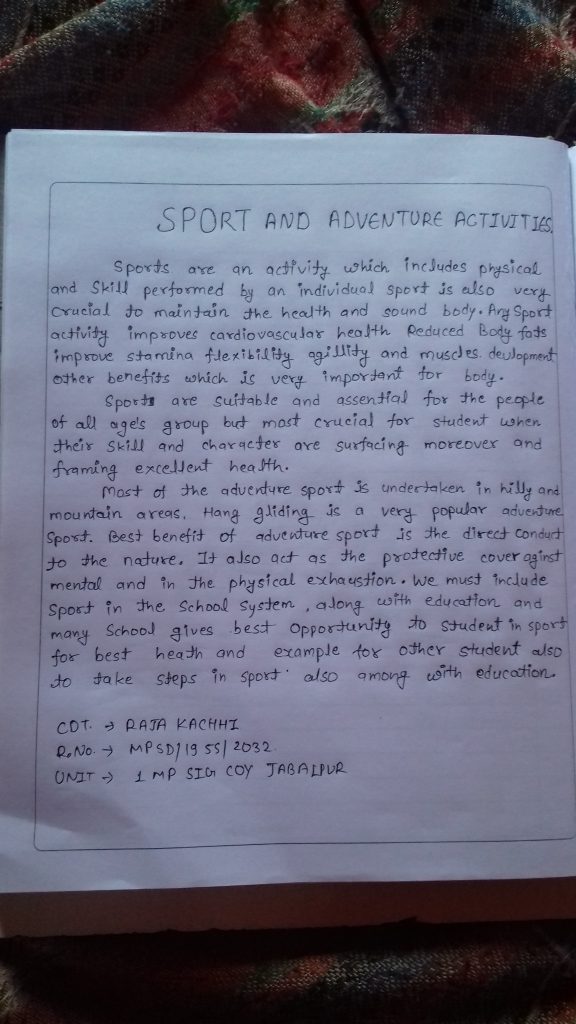 SPORT AND ADVENTURE ACTIVITIES
Sports are an activity which includes physical
and Skill performed by an individual sport is also very
Crucial to maintain the health and sound body. Any Sport
activity improves cardiovascular health Reduced Body fats
improve stamina flexibility agillity and muscles. devlopment
other benefits which is very important for body.
Sports are suitable and assential for the people
of all age's group but most crucial for student when
their skill and character are surfacing moreover and
framing excellent health.
Most of the adventure sport is undertaken in hilly and
mountain areas. Hang gliding is a very popular adventure
Sport. Best benefit of adventure sport is the direct conduct
to the nature. It also act as the protective cover aginst
mental and in the physical exhaustion. We must include
Sport in the School System, along with education and
many School gives best opportunity to student in sport
for best heath and example for other student also
to take steps in sport also among with education.
CDT. → RAJA KACHHI
R.No. → MPSD/19 SS/2032
UNIT → 1 MP SIG COY JABALPUR